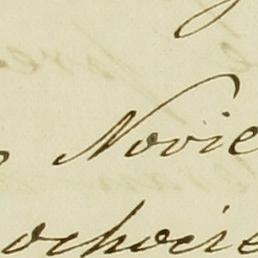 Novie
ochocie